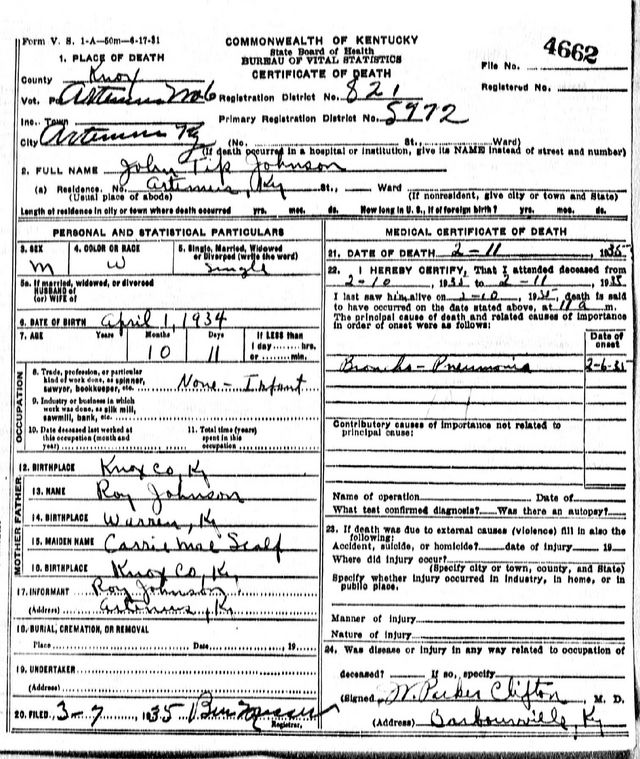 Form V. S. 1-A—50m—6-17-31
COMMONWEALTH OF KENTUCKY
State Board of Health
BUREAU OF VITAL STATISTICS
CERTIFICATE OF DEATH
4662
File No.
Registered No.
1. PLACE OF DEATH
County Knox
Vot. Artemus No 6 Registration District No. 821
Inc. Town Primary Registration District No. 5972
City Artemus Ky (No. St., Ward)
(If death occurred in a hospital or institution, give its NAME instead of street and number)
2. FULL NAME John Tip Johnson
(a) Residence. No. Artemus, Ky St., Ward
(Usual place of abode) (If nonresident, give city or town and State)
Length of residence in city or town where death occurred yrs. mos. ds. How long in U. S., if of foreign birth? yrs. mos. ds.
PERSONAL AND STATISTICAL PARTICULARS
3. SEX M
4. COLOR OR RACE W
5. Single, Married, Widowed or Divorced (write the word) Single
5a. If married, widowed, or divorced
HUSBAND of
(or) WIFE of
6. DATE OF BIRTH April 1, 1934
7. AGE Years Months Days If LESS than
10 11 1 day hrs.
or min.
OCCUPATION
8. Trade, profession, or particular
kind of work done, as spinner,
sawyer, bookkeeper, etc. None - Infant
9. Industry or business in which
work was done, as silk mill,
sawmill, bank, etc.
10. Date deceased last worked at
this occupation (month and
year)
11. Total time (years)
spent in this
occupation
12. BIRTHPLACE Knox Co Ky
FATHER
13. NAME Roy Johnson
14. BIRTHPLACE Warren, Ky
MOTHER
15. MAIDEN NAME Carrie Mae Scalf
16. BIRTHPLACE Knox Co, Ky
17. INFORMANT Roy Johnson
(Address) Artemus, Ky
18. BURIAL, CREMATION, OR REMOVAL
Place Date , 19
19. UNDERTAKER
(Address)
20. FILED 3-7, 1935 Ben
Registrar.
MEDICAL CERTIFICATE OF DEATH
21. DATE OF DEATH 2-11 1935
22. I HEREBY CERTIFY, That I attended deceased from
2-10, 1935 to 2-11, 1935
I last saw him alive on 2-10, 1935, death is said
to have occurred on the date stated above, at 11 a m.
The principal cause of death and related causes of importance
in order of onset were as follows:
Date of
onset
Broncho-Pneumonia 2-6-35
Contributory causes of importance not related to
principal cause:
Name of operation Date of
What test confirmed diagnosis? Was there an autopsy?
23. If death was due to external causes (violence) fill in also the
following:
Accident, suicide, or homicide? date of injury 19
Where did injury occur?
(Specify city or town, county, and State)
Specify whether injury occurred in industry, in home, or in
public place.
Manner of injury
Nature of injury
24. Was disease or injury in any way related to occupation of
deceased? If so, specify
(Signed) W. Parker Clifton, M. D.
(Address) Barbourville, Ky